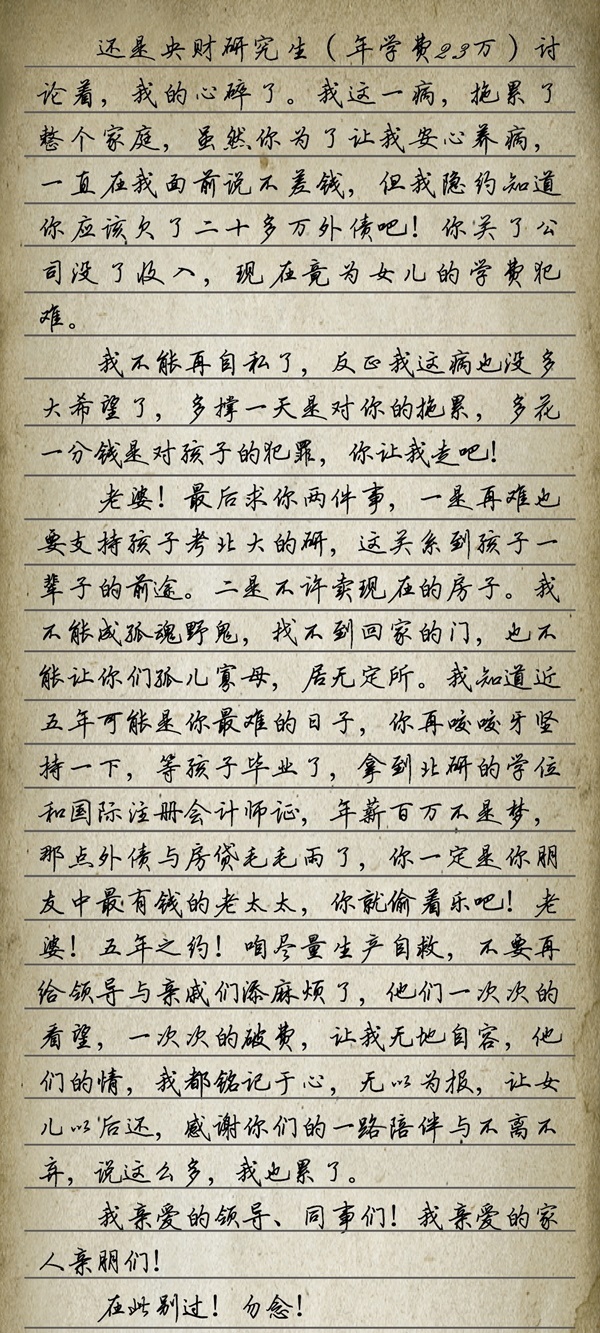 还是央财研究生（年学费23万）讨
论着，我的心碎了。我这一病，拖累了
整个家庭，虽然你为了让我安心养病，
一直在我面前说不差钱，但我隐约知道
你应该欠了二十多万外债吧！你关了公
司没了收入，现在竟为女儿的学费犯
难。
我不能再自私了，反正我这病也没多
大希望了，多撑一天是对你的拖累，多花
一分钱是对孩子的犯罪，你让我走吧！
老婆！最后求你两件事，一是再难也
要支持孩子考北大的研，这关系到孩子一
辈子的前途。二是不许卖现在的房子。我
不能成孤魂野鬼，找不到回家的门，也不
能让你们孤儿寡母，居无定所。我知道近
五年可能是你最难的日子，你再咬咬牙坚
持一下，等孩子毕业了，拿到北研的学位
和国际注册会计师证，年薪百万不是梦，
那点外债与房贷毛毛雨了，你一定是你朋
友中最有钱的老太太，你就偷着乐吧！老
婆！五年之约！咱尽量生产自救，不要再
给领导与亲戚们添麻烦了，他们一次次的
看望，一次次的破费，让我无地自容，他
们的情，我都铭记于心，无以为报，让女
儿以后还，感谢你们的一路陪伴与不离不
弃，说这么多，我也累了。
我亲爱的领导、同事们！我亲爱的家
人亲朋们！
在此别过！勿念！